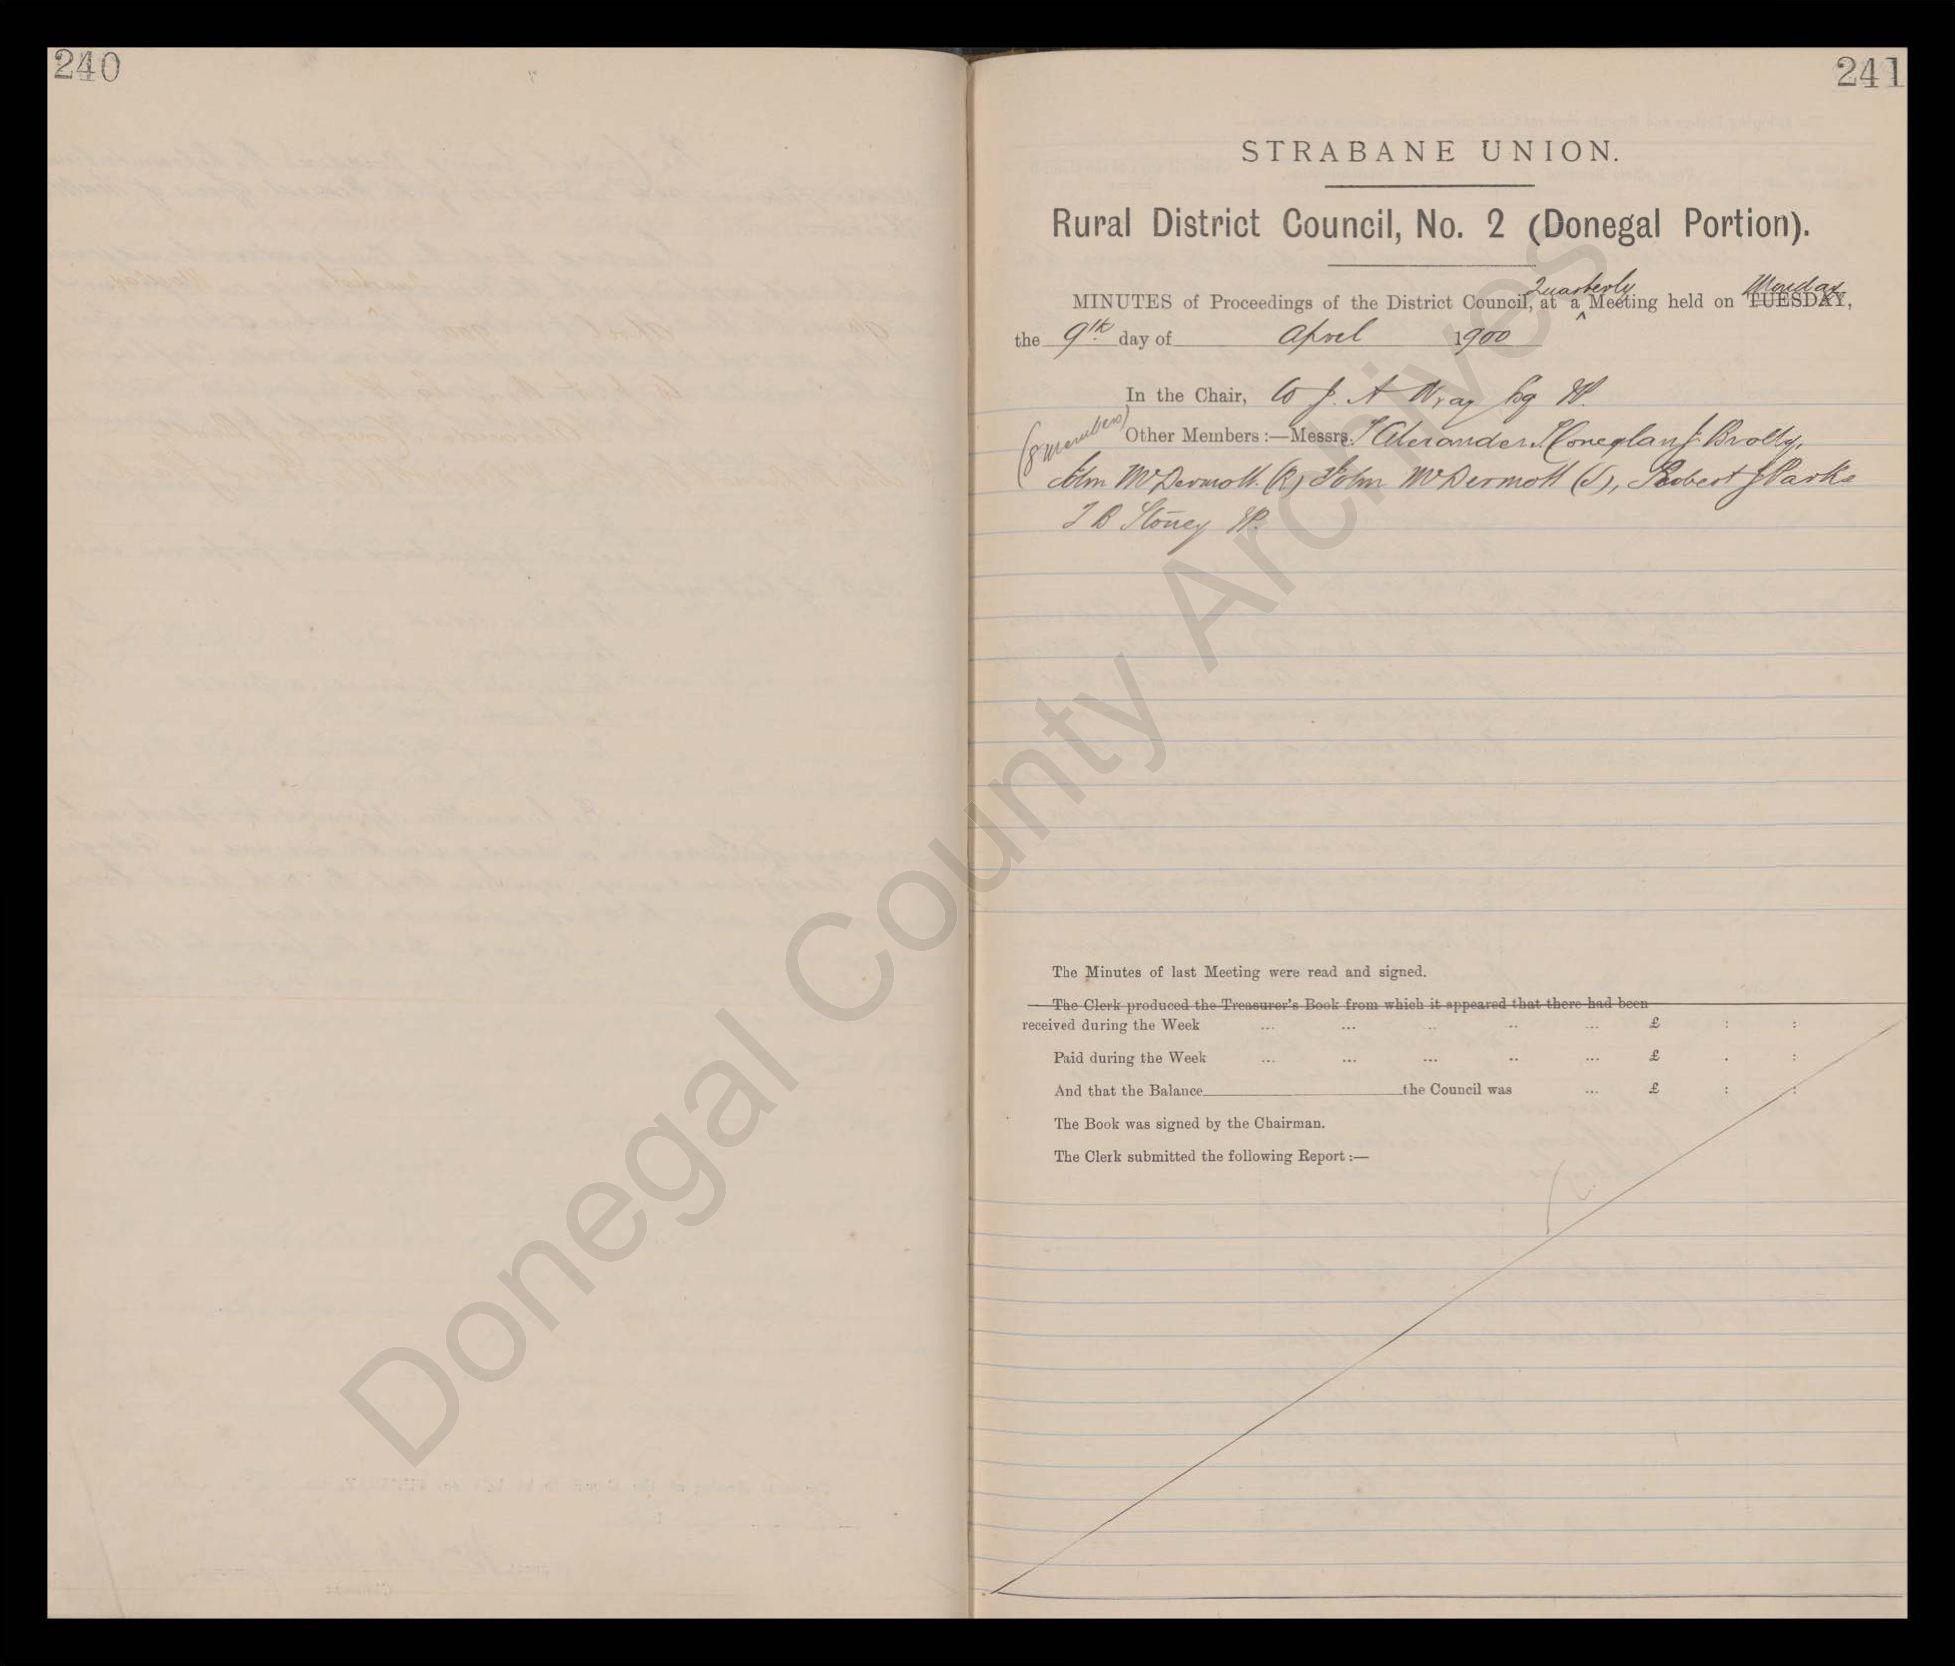 240
241
STRABANE UNION.
Rural District Council, No. 2 (Donegal Portion).
Quarterly Monday
MINUTES of Proceedings of the District Council, at a Meeting held on TUESDAY,
the 9th day of April 1900
In the Chair, W J. A Wray Esq JP.
(8 members)
Other Members :—Messrs. T Alexander J Coneglan J. Brolly,
John McDermott (R) John McDermott (S), Robert J Parke
T B Stoney JP.
The Minutes of last Meeting were read and signed.
The Clerk produced the Treasurer's Book from which it appeared that there had been
received during the Week ... ... .. .. ... £ : :
Paid during the Week ... ... ... .. ... £ . :
And that the Balance the Council was ... £ : :
The Book was signed by the Chairman.
The Clerk submitted the following Report :—
Donegal County Archives